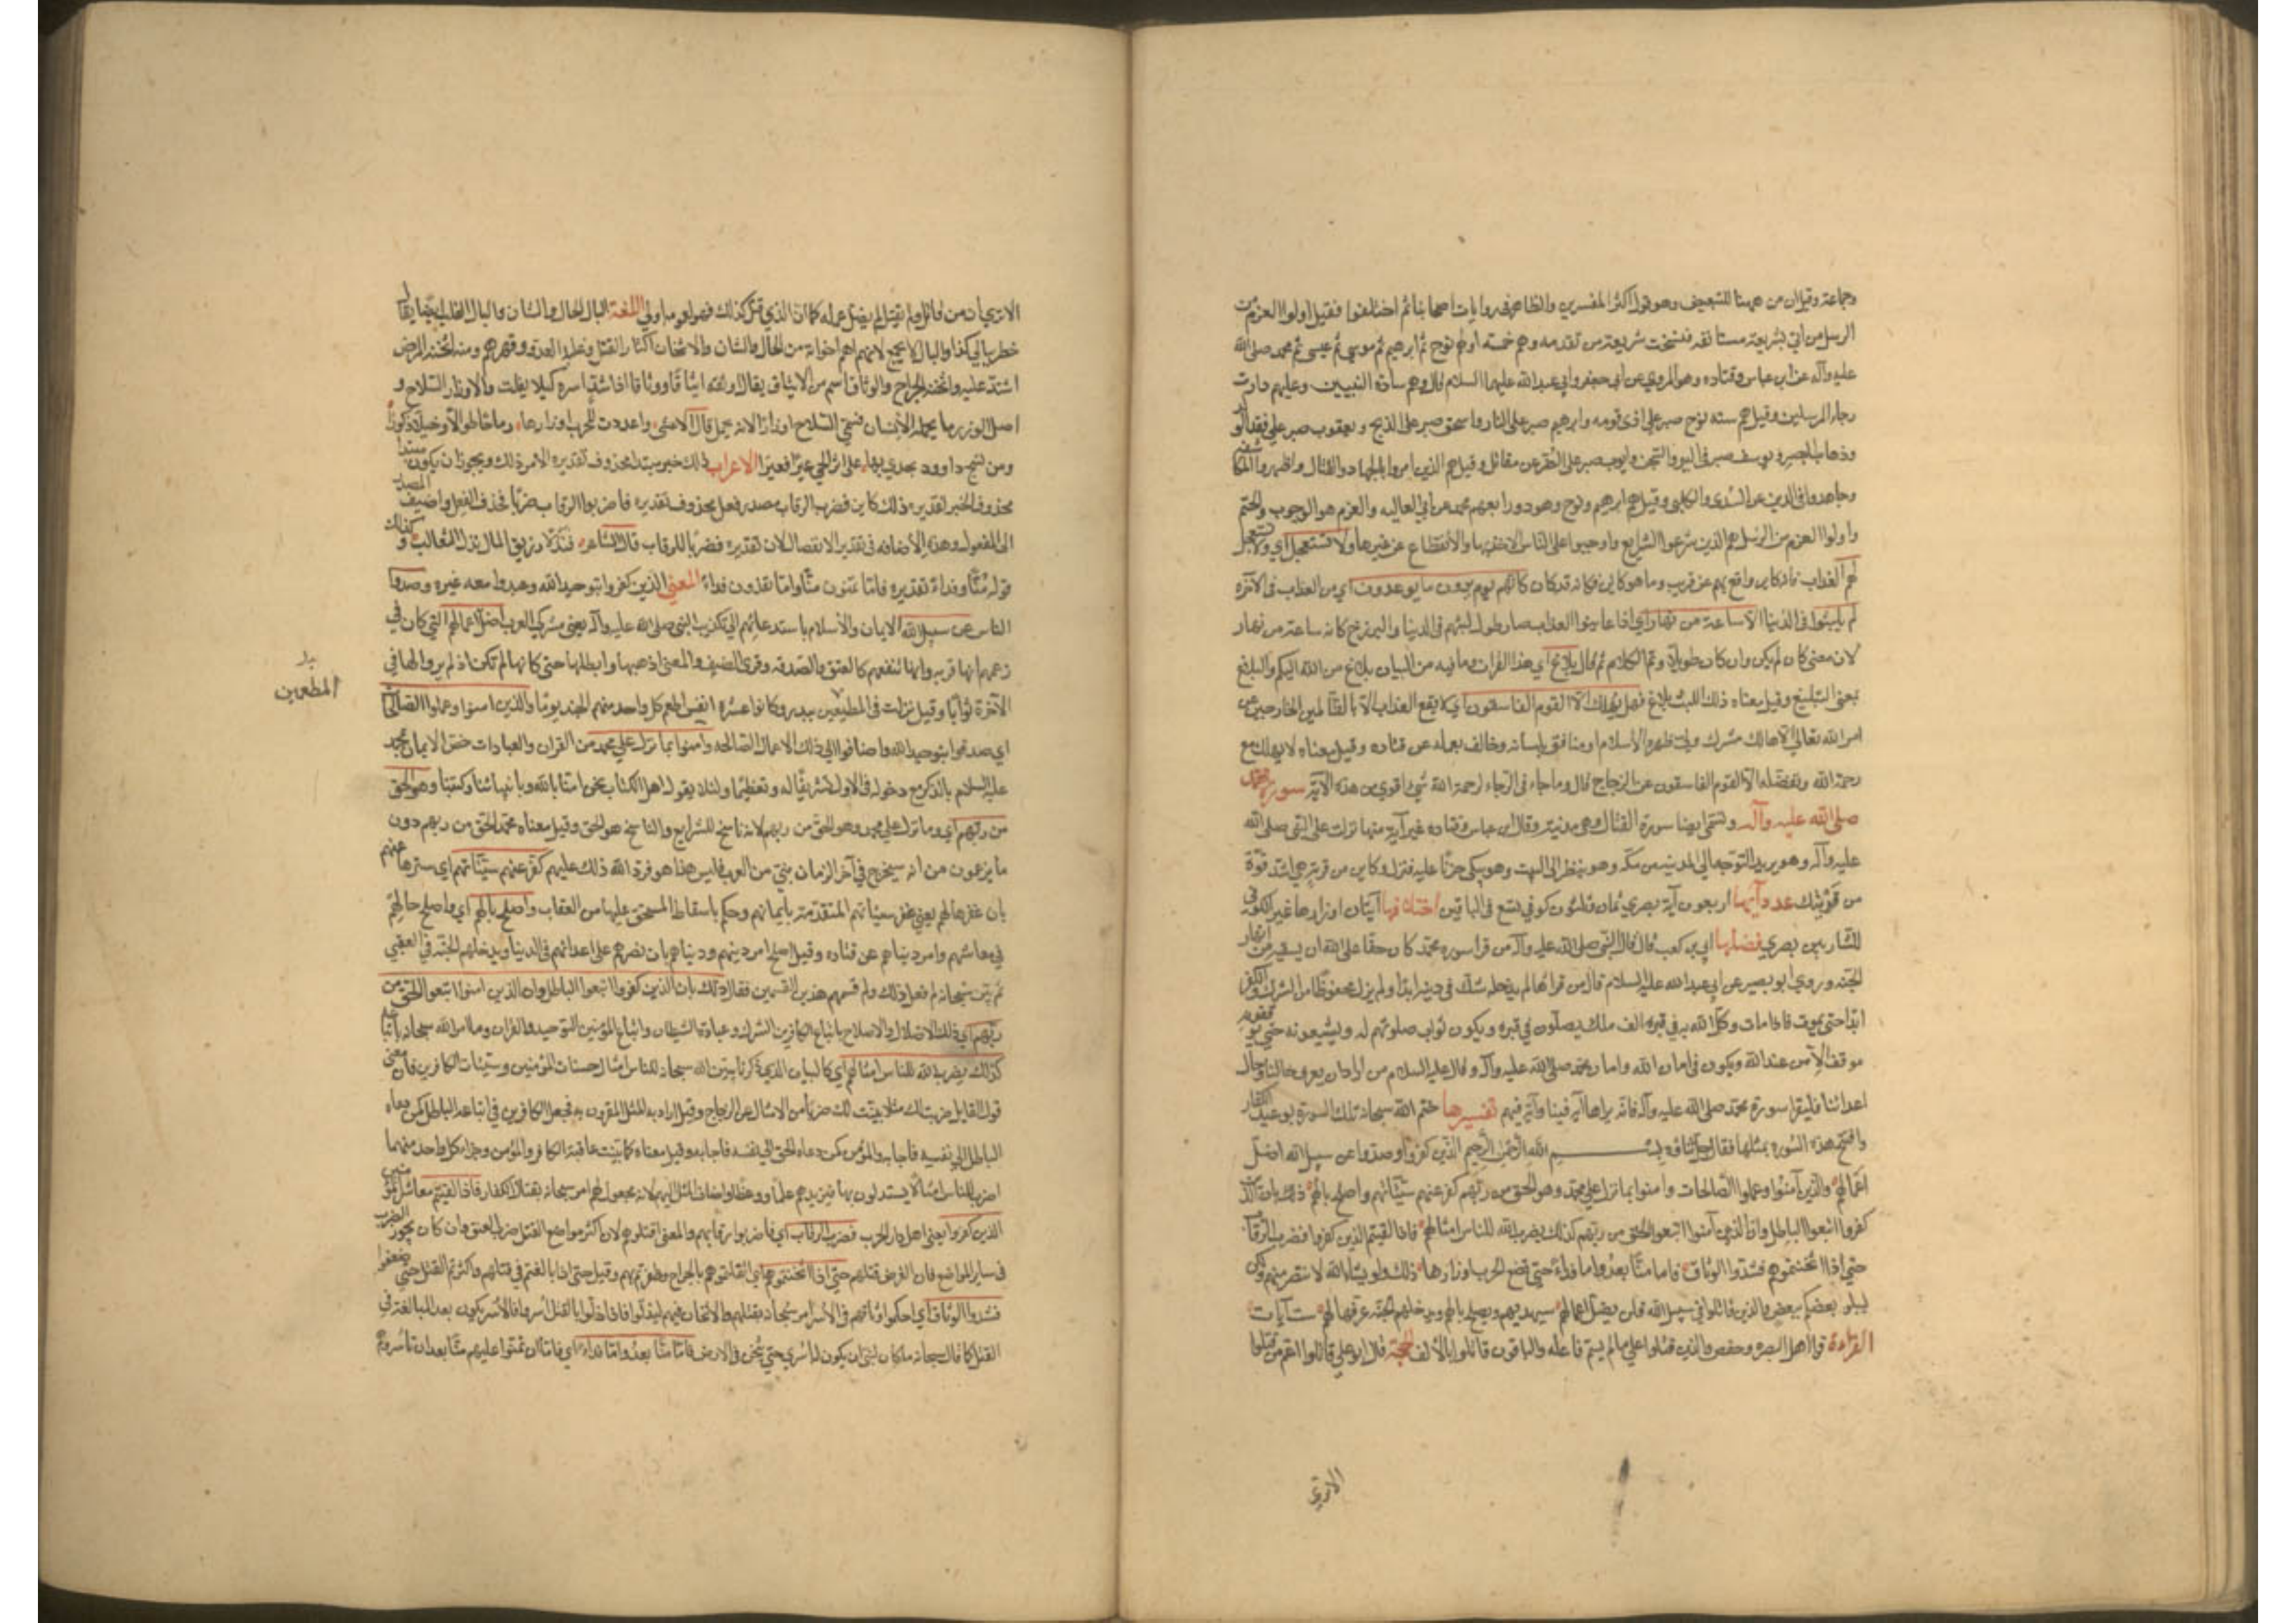 وجماعة وقيل ان من ههنا للتبعيض وهو قول اكثر المفسرين والظاهر في روايات اصحابنا ثم اختلفوا فقيل اولوا العزم من
الرسل من اتي بشريعة مستانفة نسخت شريعة من تقدمه وهم خمسة اولهم نوح ثم ابرهيم ثم موسي ثم عيسى ثم محمد صلى الله
عليه وآله عن ابن عباس وقتاده وهو المروي عن ابي جعفر وابي عبد الله عليهما السلام قال وهم سادة النبيين وعليهم دارت
رحاء المرسلين وقيل هم سته نوح صبر على اذى قومه وابرهيم صبر على النار واسحق صبر على الذبح ويعقوب صبر على فقد الولد
وذهاب البصر ويوسف صبر في البئر والسجن وايوب صبر على الضر عن مقاتل وقيل هم الذين امروا بالجهاد والقتال واظهروا المكاشفة
وجاهدوا في الدين عن السدي والكلبي وقيل هم ابرهيم ونوح وهود ورابعهم محمد عن ابي العاليه والعزم هو الوجوب والحتم
واولوا العزم من الرسل هم الذين شرعوا الشرايع واوجبوا على الناس الاخذ بها والانقطاع عن غيرها ولا تستعجل اي ولا تستعجل
لهم العذاب فانه كاين واقع بهم عن قريب وما هو كاين فكانه قد كان كانهم يوم يرون ما يوعدون اي من العذاب في الآخرة
لم يلبثوا في الدنيا الا ساعة من نهار اي اذا عاينوا العذاب صار طول لبثهم في الدنيا والبرزخ كانه ساعة من نهار
لان ما مضى كان لم يكن وان كان طويلا وتم الكلام ثم قال بلاغ اي هذا القران وما فيه من البيان بلاغ من الله اليكم والبلاغ
بمعنى التبليغ وقيل معناه ذلك اللبث بلاغ فهل يهلك الا القوم الفاسقون اي لا يقع العذاب الا بالظالمين الخارجين عن
امر الله تعالى الا هالك مشرك ولى ظهره الاسلام او منافق بلسانه وخالف بعمله عن قتاده وقيل معناه لا يهلك مع
رحمة الله وتفضله الا القوم الفاسقون عن الزجاج قال وما جاء في الرجاء لرحمة الله شي اقوي من هذه الآية سورة محمد
صلى الله عليه وآله وتسمى ايضا سورة القتال وهي مدنية وقال ابن عباس وقتاده غير آية منها نزلت على النبي صلى الله
عليه وآله وهو يريد التوجه الى المدينه من مكة وهو ينظر الى البيت وهو يبكي حزنا عليه فنزل وكاين من قرية هي اشد قوة
من قريتك عدد آيها اربعون آية بصري ثمان وثلثون كوفي تسع في الباقين اختلافها آيتان اوزارها غير الكوفي
للشاربين بصري فضلها ابي بن كعب قال قال النبي صلى الله عليه وآله من قرا سورة محمد كان حقا على الله ان يسقيه من انهار
الجنة وروي ابو بصير عن ابي عبد الله عليه السلام قال من قراها لم يدخله شك في دينه ابدا ولم يزل محفوظا من الشرك والكفر
ابدا حتى يموت فاذا مات وكل الله به في قبره الف ملك يصلون في قبره ويكون ثواب صلوتهم له ويشيعونه حتى يوقفوه
موقف الآمن عند الله ويكون في امان الله وامان محمد صلى الله عليه وآله وقال عليه السلام من اراد ان يعرف حالنا وحال
اعدائنا فليقرا سورة محمد صلى الله عليه وآله فانه يراها آية فينا وآية فيهم تفسيرها ختم الله سبحانه تلك السورة بوعيد الكفار
وافتتح هذه السورة بمثلها فقال بســـم الله الرحمن الرحيم الذين كفروا وصدوا عن سبيل الله اضل
اعمالهم والذين آمنوا وعملوا الصالحات وامنوا بما نزل على محمد وهو الحق من ربهم كفر عنهم سيئاتهم واصلح بالهم ذلك بان الذين
كفروا اتبعوا الباطل وان الذين آمنوا اتبعوا الحق من ربهم كذلك يضرب الله للناس امثالهم فاذا لقيتم الذين كفروا فضرب الرقاب
حتى اذا اثخنتموهم فشدوا الوثاق فاما منا بعد واما فداء حتى تضع الحرب اوزارها ذلك ولو يشاء الله لانتصر منهم ولكن
ليبلو بعضكم ببعض والذين قاتلوا في سبيل الله فلن يضل اعمالهم سيهديهم ويصلح بالهم ويدخلهم الجنة عرفها لهم ست آيات
القراءة قرا اهل البصرة وحفص والذين قتلوا على ما لم يسم فاعله والباقون قاتلوا بالالف الحجة قال ابو علي قاتلوا اعم من قتلوا
الا تري
الا تري ان من قاتل ولم يقتل لم يضل عمله كما ان الذي قتل كذلك فهو لعمومه اولى اللغة البال الحال والشان والبال القلب ايضا يقال
خطر ببالي كذا والبال لا يجمع لانه ابهم اخواته من الحال والشان والاثخان اكثار القتل وغلبة العدو وقهرهم ومنه اثخنه المرض
اشتد عليه واثخنه الجراح والوثاق اسم من الايثاق يقال اوثقه ايثاقا ووثاقا اذا شد اسره كيلا يفلت والاوزار السلاح و
اصل الوزر ما يحمله الانسان فسمي السلاح اوزارا لانه يحمل قال الاعشى واعددت للحرب اوزارها وما حا طوالا وخيلا ذكورا
ومن نسج داوود يحدي بها على اثر الحي عيرا فعيرا الاعراب ذلك خبر مبتدا محذوف تقديره الامر ذلك ويجوز ان يكون مبتدا
محذوف الخبر تقديره ذلك كاين فضرب الرقاب مصدر فعل محذوف تقديره فاضربوا الرقاب ضربا فحذف الفعل واضيف المصدر
الى المفعول وهذه الاضافه في تقدير الانفصال لان تقديره فضربا للرقاب قال الشاعر فندلا زريق المال ندل الثعالب وكذلك
قوله منا وفداء تقديره فاما تمنون منا واما تفدون فداء المعني الذين كفروا بتوحيد الله وعبدوا معه غيره وصدوا
الناس عن سبيل الله الايمان والاسلام باستدعائهم الى تكذيب النبي صلى الله عليه وآله يعني مشركي العرب اضل اعمالهم التي كان في
زعمهم انها قربه وانها تنفعهم كالعتق والصدقه وقرى الضيف والمعنى اذهبها وابطلها حتى كانها لم تكن اذ لم يروا لها في
الآخرة ثوابا وقيل نزلت في المطيعين ببدر وكانوا عشرة انفس اطعم كل واحد منهم الجند يوما والذين امنوا وعملوا الصالحات
المطعمين
اي صدقوا بتوحيد الله واضافوا الى ذلك الاعمال الصالحه وامنوا بما نزل على محمد من القران والعبادات خص الايمان بمحمد
عليه السلام بالذكر مع دخوله في الاول تشريفا له وتعظيما ولئلا يقول اهل الكتاب نحن امنا بالله وبانبيائنا وكتبنا وهو الحق
من ربهم اي وما نزل على محمد وهو الحق من ربهم لانه ناسخ للشرايع والناسخ هو الحق وقيل معناه محمد الحق من ربهم دون
ما يزعمون من انه سيخرج في آخر الزمان نبي من العرب فليس هذا هو فرد الله ذلك عليهم كفر عنهم سيئاتهم اي سترها عنهم
بان غفرها لهم يعني غفر سيئاتهم المتقدمة بايمانهم وحكم باسقاط المستحق عليها من العقاب واصلح بالهم اي واصلح حالهم
في معاشهم وامر دنياهم عن قتاده وقيل اصلح امر دينهم ودنياهم بان نصرهم على اعدائهم في الدنيا ويدخلهم الجنة في العقبى
ثم بين سبحانه لم فعل ذلك ولم قسمهم هذين القسمين فقال ذلك بان الذين كفروا اتبعوا الباطل وان الذين امنوا اتبعوا الحق من
ربهم اي ذلك الاضلال والاصلاح باتباع الكافرين الشرك وعبادة الشيطان واتباع المؤمنين التوحيد والقران وما امر الله سبحانه باتباعه
كذلك يضرب الله للناس امثالهم اي كالبيان الذي ذكرنا يبين الله سبحانه للناس امثال حسنات المؤمنين وسيئات الكافرين فان معنى
قول القايل ضربت لك مثلا بينت لك ضربا من الامثال عن الزجاج وقيل اراد به المثل المقرون به فجعل الكافرين في اتباعه الباطل كمن دعاه
الباطل الى نفسه فاجابه والمؤمن كمن دعاه الحق الى نفسه فاجابه وقيل معناه كما بينت عاقبة الكافر والمؤمن وجزاء كل واحد منهما
اضرب للناس امثالا يستدلون بها فيزيدهم علما ووعظا واضاف المثل اليهم لانه مجعول لهم امر سبحانه بقتال الكفار فاذا لقيتم معاشر المؤمنين
الذين كفروا يعني اهل دار الحرب فضرب الرقاب اي فاضربوا رقابهم والمعنى اقتلوهم لان اكثر مواضع القتل ضرب العنق وان كان يجوز الضرب
في ساير المواضع فان الغرض قتلهم حتى اذا اثخنتموهم اي اثقلتموهم بالجراح وظفرتم بهم وقيل حتى اذا بالغتم في قتلهم واكثرتم القتل حتى ضعفوا
فشدوا الوثاق اي احكموا وثاقهم في الاسر امر سبحانه بقتلهم والاثخان فيهم ليذلوا فاذا ذلوا بالقتل اسروا فالاسر يكون بعد المبالغة في
القتل كما قال سبحانه ما كان لنبي ان يكون له اسرى حتى يثخن في الارض فاما منا بعد واما فداء اي فاما ان تمنوا عليهم منا بعد ان تاسروهم